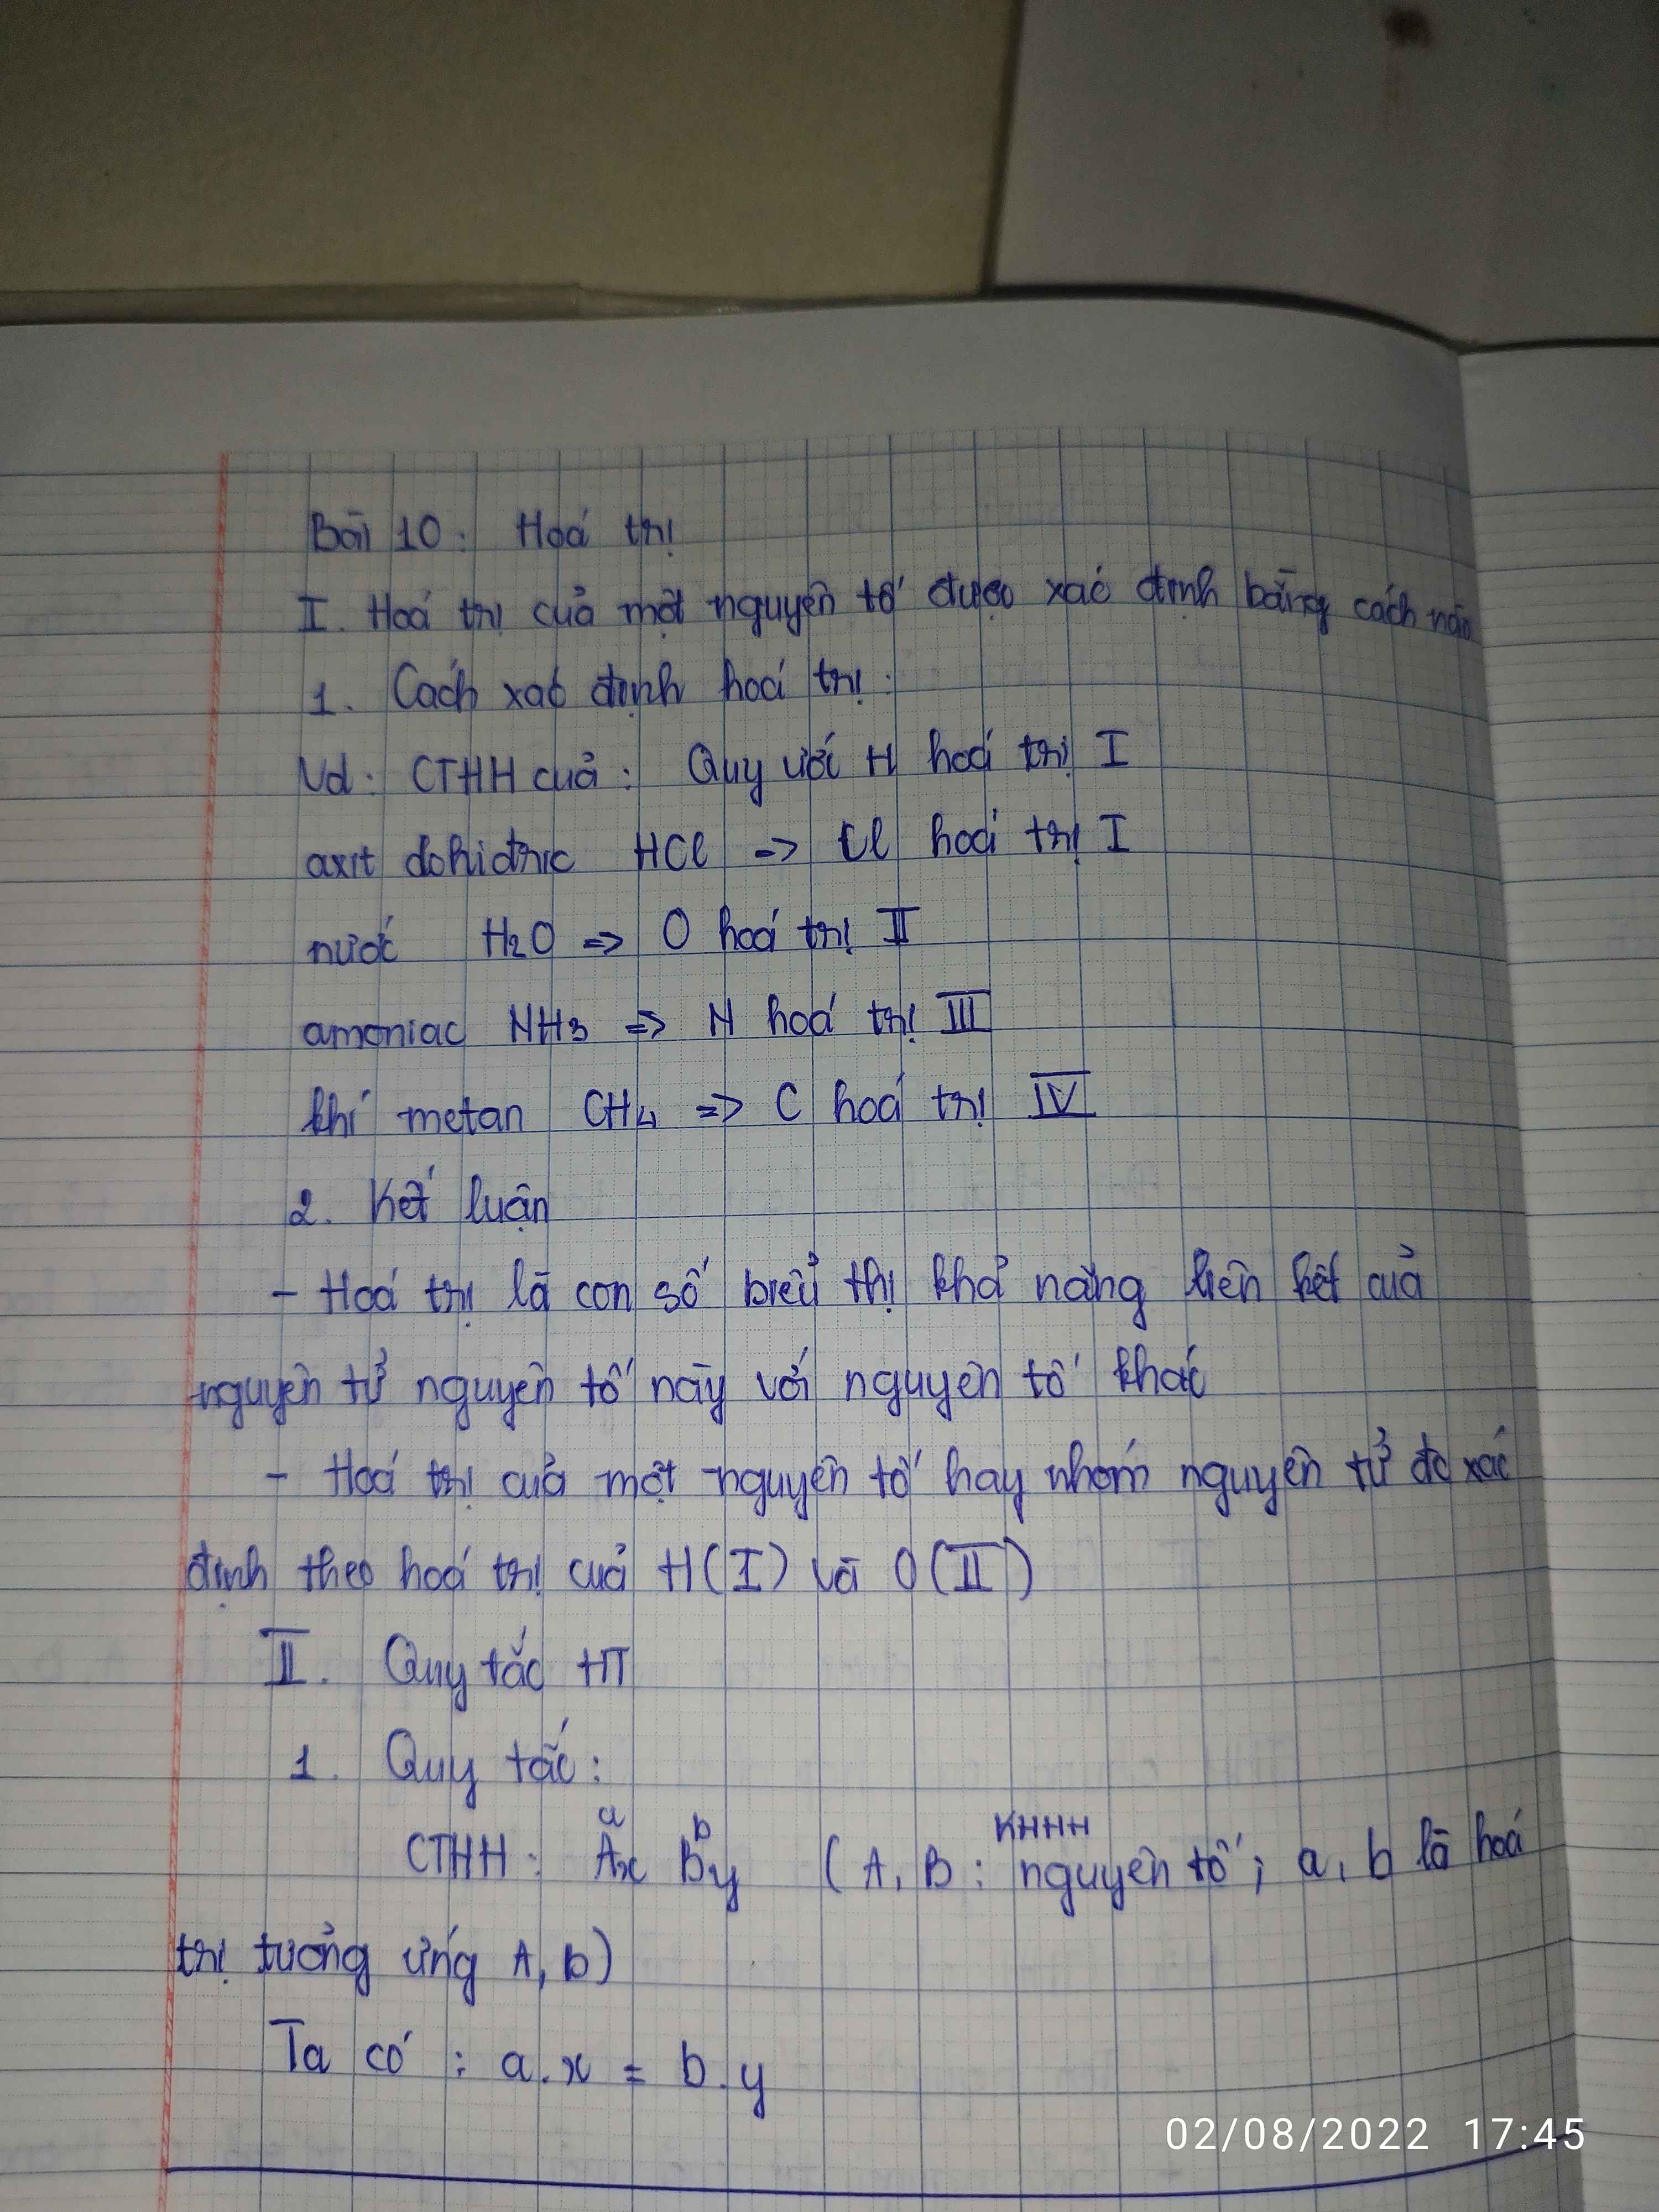 Bài 10: Hoá trị
I. Hoá trị của một nguyên tố được xác định bằng cách nào
1. Cách xác định hoá trị:
Vd: CTHH của: Quy ước H hoá trị I
axit clohidric HCl => Cl hoá trị I
nước H₂O => O hoá trị II
amoniac NH₃ => N hoá trị III
khí metan CH₄ => C hoá trị IV
2. Kết luận
- Hoá trị là con số biểu thị khả năng liên kết của
nguyên tử nguyên tố này với nguyên tố khác
- Hoá trị của một nguyên tố hay nhóm nguyên tử đc xác
định theo hoá trị của H(I) và O(II)
II. Quy tắc HT
1. Quy tắc:
a b KHHH
CTHH: Ax By ( A, B: nguyên tố; a, b là hoá
trị tương ứng A, b)
Ta có: a.x = b.y
02/08/2022 17:45